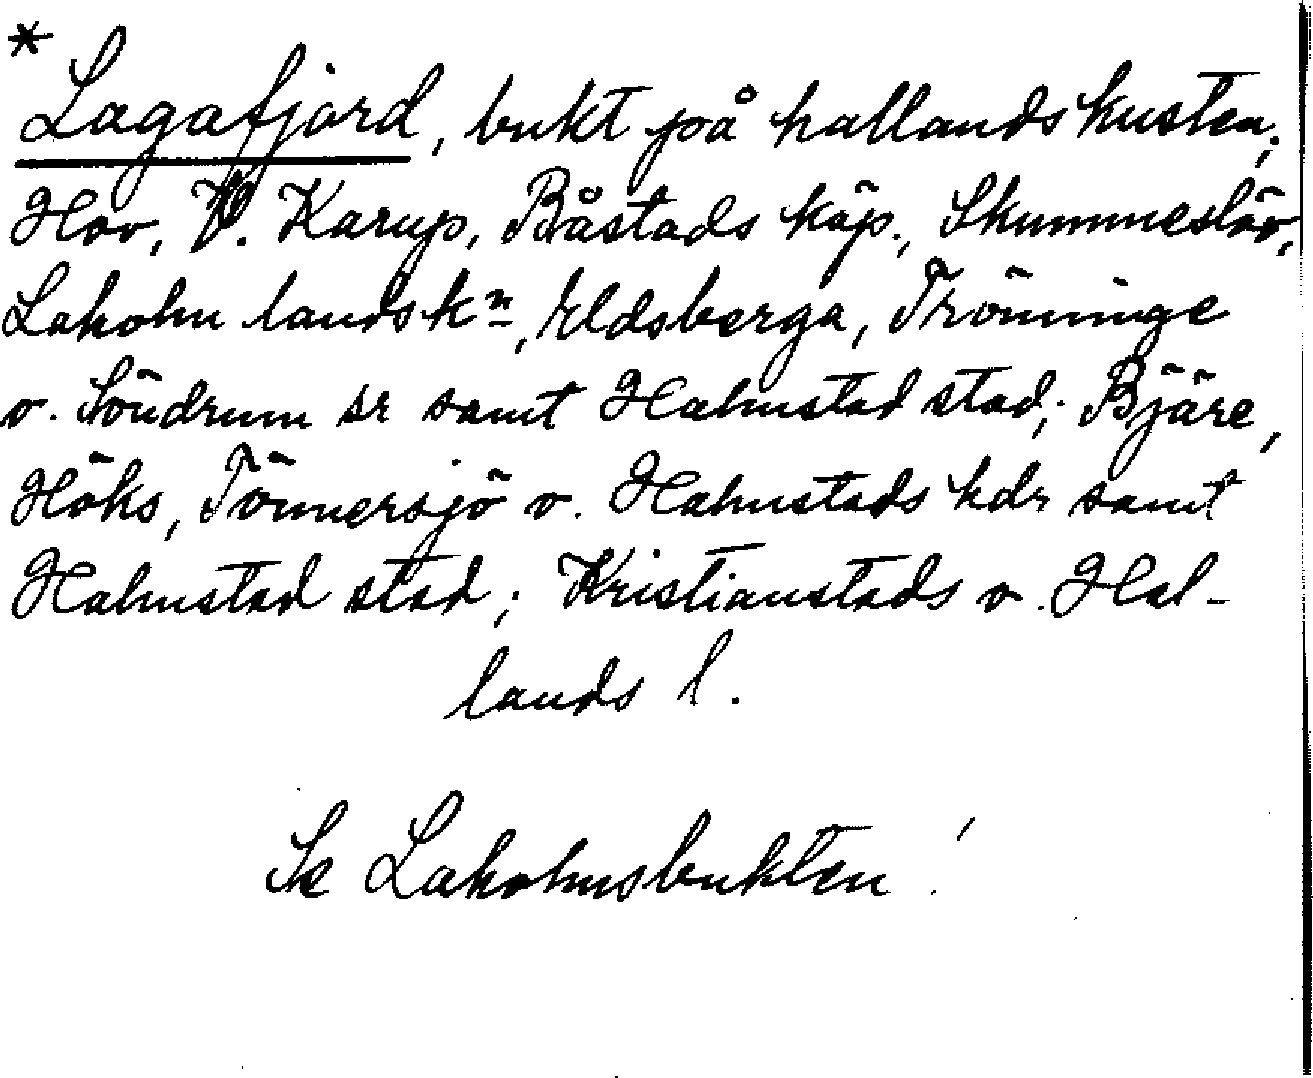 * Lagafjord, bukt på hallandskusten;
Hov, V. Karup, Båstads köp., Skummeslöv,
Laholm landskn, Eldsberga, Trönninge
o. Söndrum sr samt Halmstad stad; Bjäre,
Höks, Tönnersjö o. Halmstads hdr samt
Halmstad stad; Kristianstads o. Hal-
lands l.
Se Laholmsbukten!